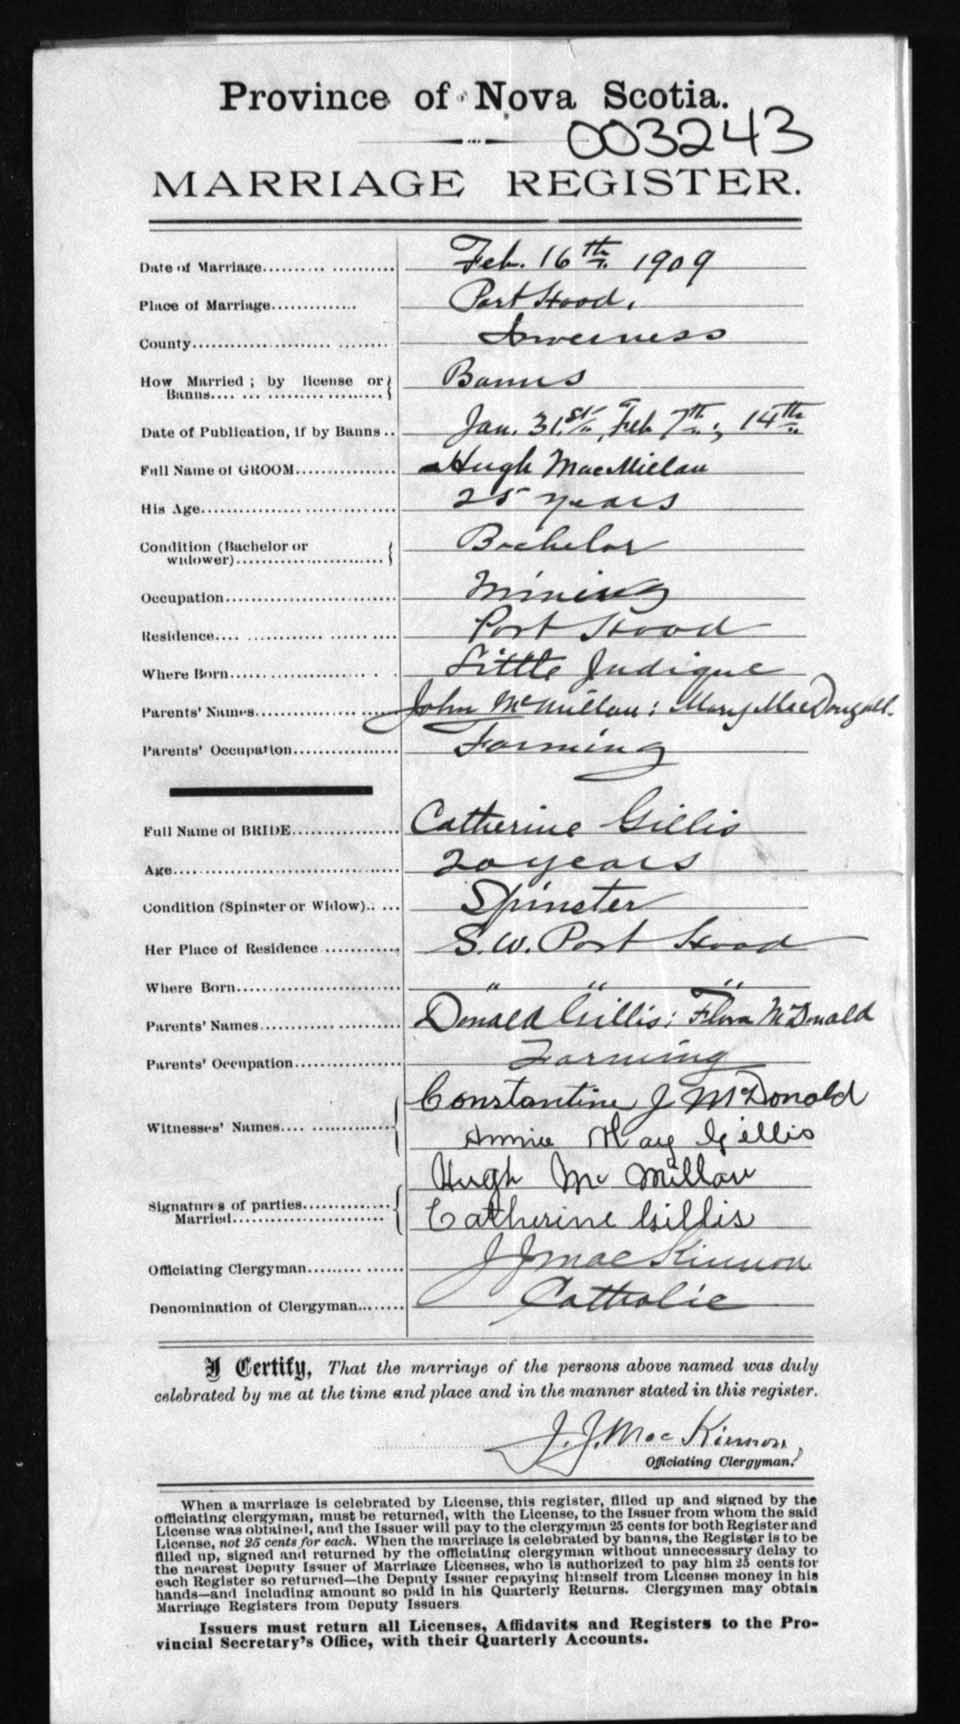 Province of Nova Scotia.
003243
MARRIAGE REGISTER.
Date of Marriage.......... Feb. 16th 1909
Place of Marriage............. Port Hood.
County.......................... Inverness
How Married ; by license or Banns.... Banns
Date of Publication, if by Banns .. Jan. 31st, Feb 7th; 14th
Full Name of GROOM............... Hugh MacMillan
His Age.............................. 25 years
Condition (Bachelor or widower)........................ Bachelor
Occupation........................... Mining
Residence.... Port Hood
Where Born.......................... Little Judique
Parents' Names...................... John McMillan; Mary MacDougall.
Parents' Occupation................ Farming
Full Name of BRIDE................. Catherine Gillis
Age.................................... 20 years
Condition (Spinster or Widow).. ... Spinster
Her Place of Residence ............ S.W. Port Hood
Where Born.......................... " " "
Parents' Names...................... Donald Gillis; Flora McDonald
Parents' Occupation................. Farming
Witnesses' Names.... Constantine J McDonald
Annie May Gillis
Signatures of parties Married....................... Hugh Mc Millan
Catherine Gillis
Officiating Clergyman.............. J J MacKinnon
Denomination of Clergyman........ Catholic
I Certify, That the marriage of the persons above named was duly
celebrated by me at the time and place and in the manner stated in this register.
J. J. MacKinnon,
Officiating Clergyman.
When a marriage is celebrated by License, this register, filled up and signed by the
officiating clergyman, must be returned, with the License, to the Issuer from whom the said
License was obtained, and the Issuer will pay to the clergyman 25 cents for both Register and
License, not 25 cents for each. When the marriage is celebrated by banns, the Register is to be
filled up, signed and returned by the officiating clergyman without unnecessary delay to
the nearest Deputy Issuer of Marriage Licenses, who is authorized to pay him 25 cents for
each Register so returned—the Deputy Issuer repaying himself from License money in his
hands—and including amount so paid in his Quarterly Returns. Clergymen may obtain
Marriage Registers from Deputy Issuers
Issuers must return all Licenses, Affidavits and Registers to the Pro-
vincial Secretary's Office, with their Quarterly Accounts.